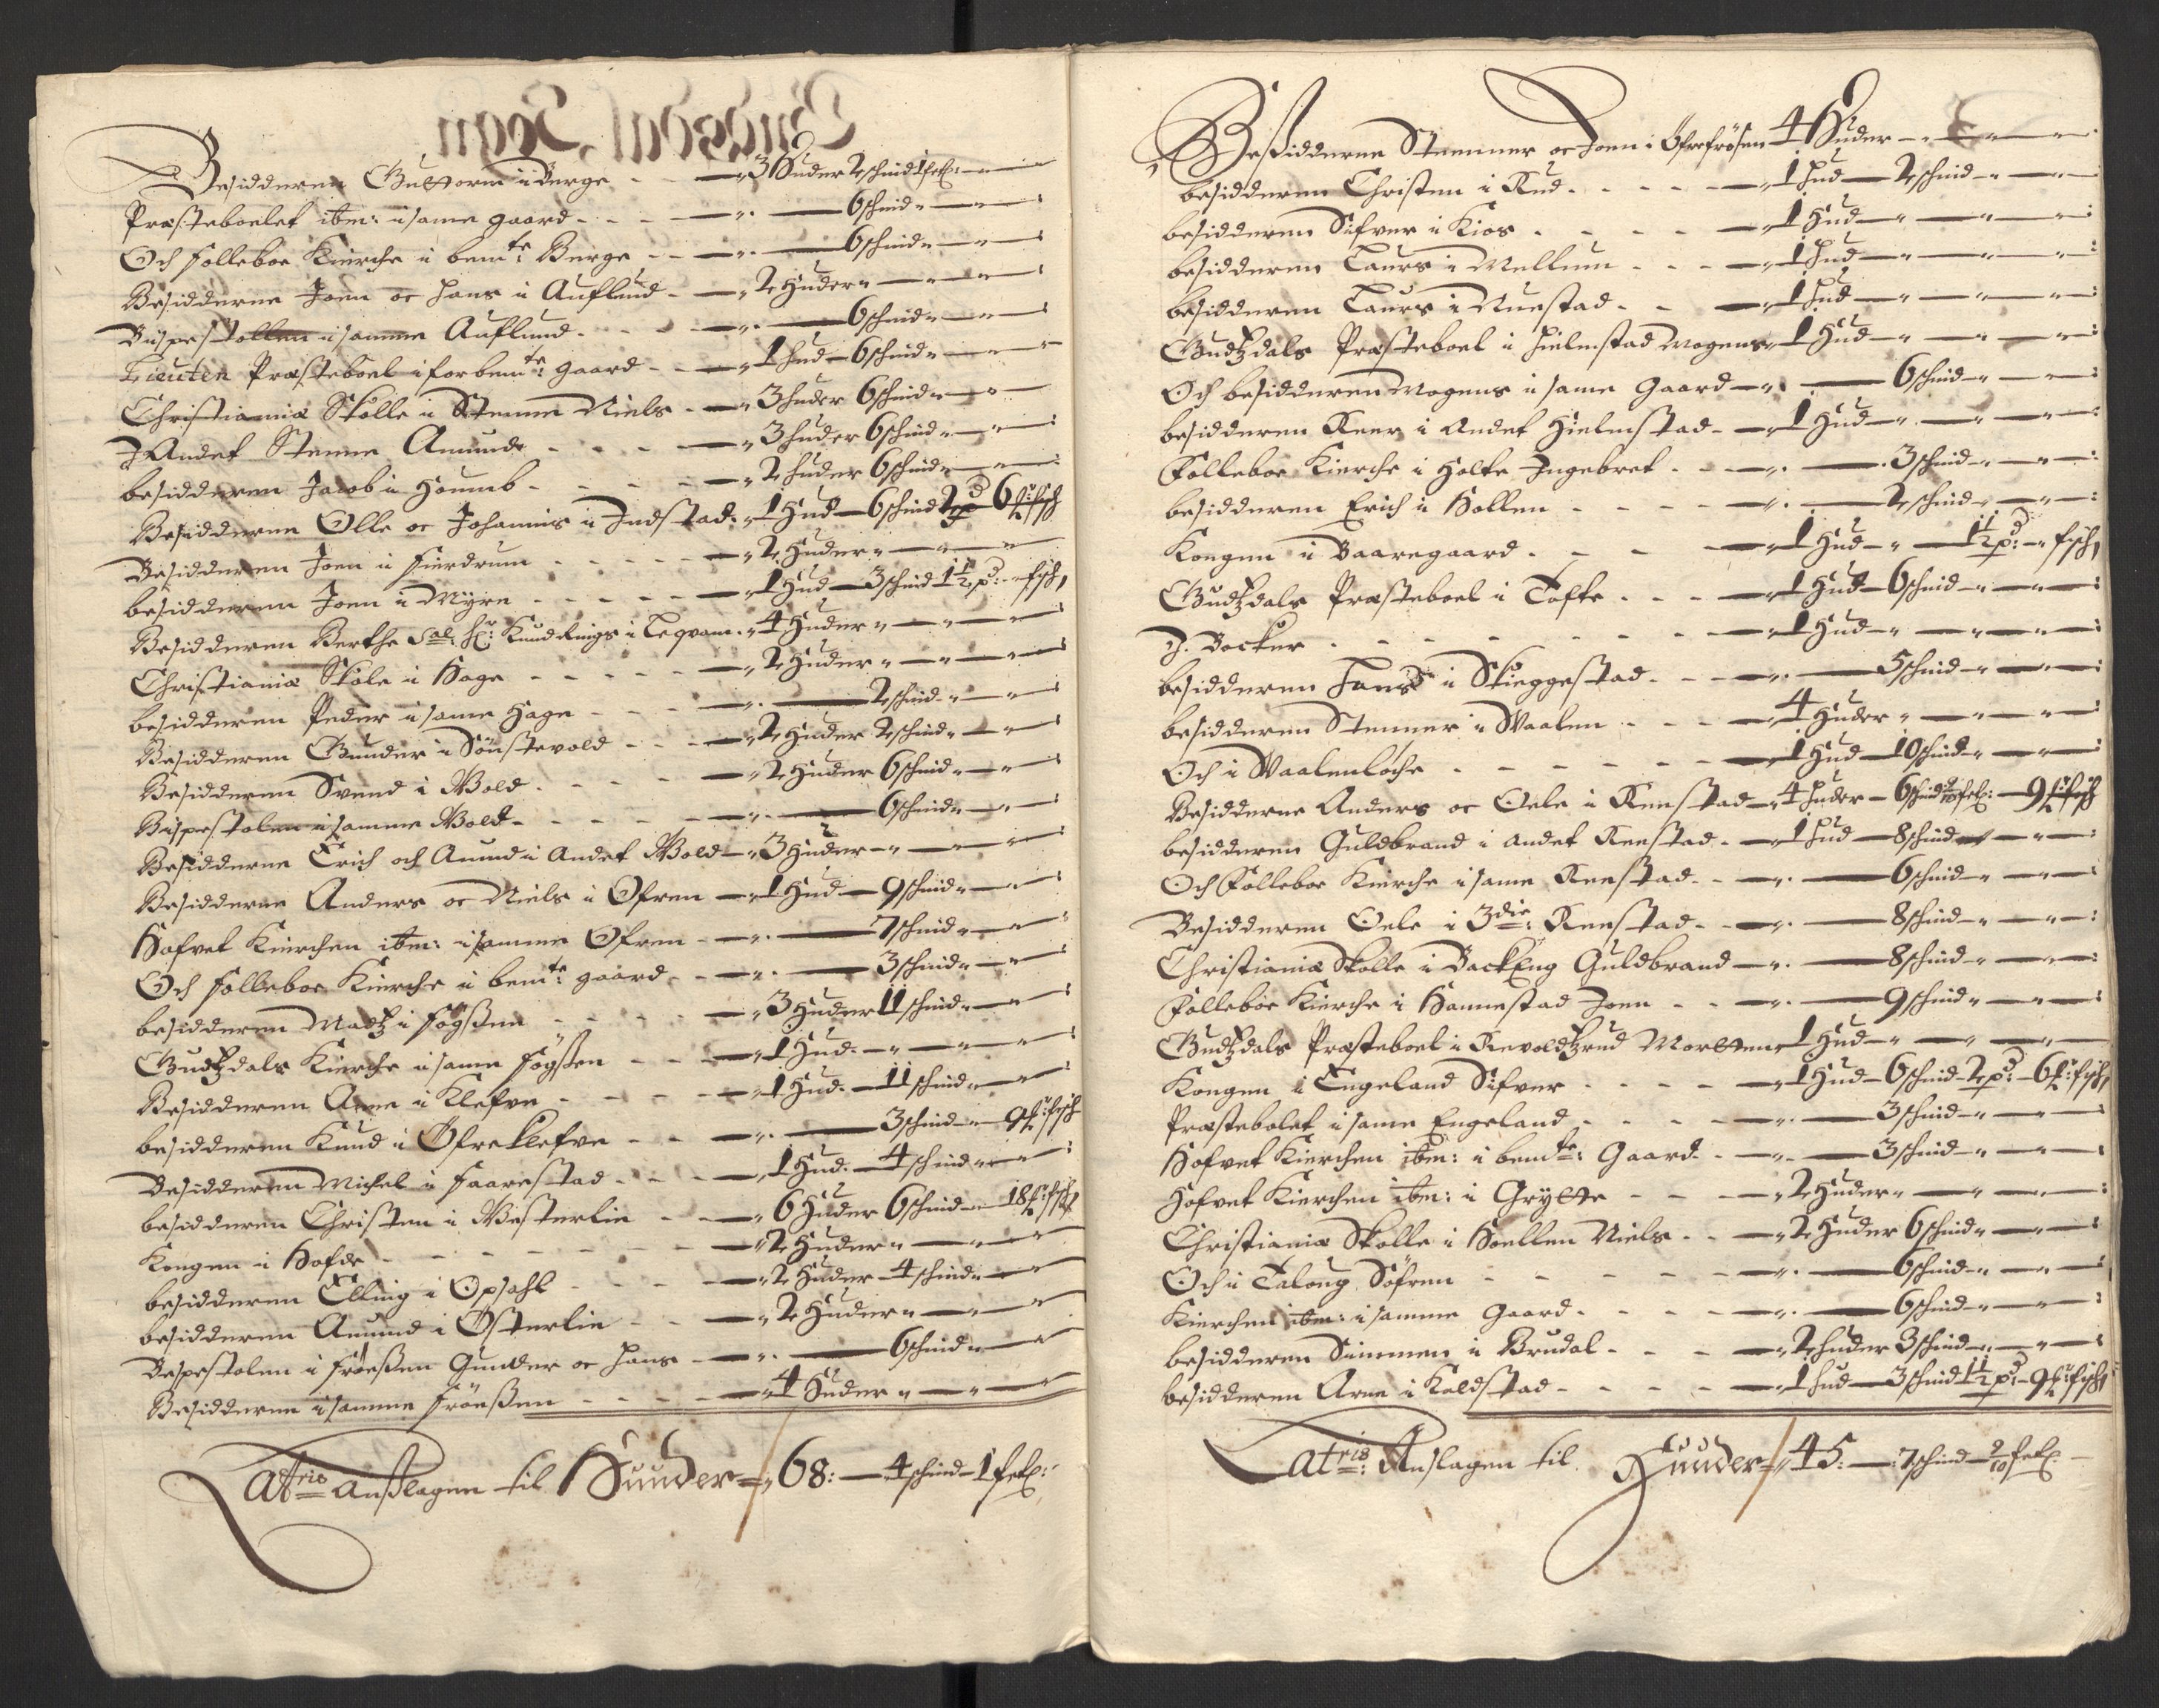 Besidderen Guttorm i Berge - - 3 Huder 2 schind 1 fche:
Præsteboelet ibm: i same gaard - - 6 schind
Och Folleboe Kierche i bemte: Berge - - 6 schind
Besidderne Joen oc Hans i Auflund - 2 Huder
Bispestollen i samme Auflund - - 6 schind
Lieuten Præsteboel i forbemte: gaard - - 1 hud - 6 schind
Christiania Skolle i Stenne Niels - 3 huder 6 schind
J Andet Stenne Amund - - 3 huder 6 schind
besidderen Jacob i Houmb - - 2 huder 6 schind
Besidderne Olle oc Johannis i Jndstad - 1 Hud - 6 schind 2 pd 6 fisch
Besidderen Joen i Fierdrum - - 2 Huder
besidderen Joen i Myre - - 1 Hud - 3 schind 1½ pd: - fisch
Besidderen Berthe Sal: Hr: Knud Rings i Leqvam - 4 Huder
Christiania Skole i Hage - - 2 Huder
besidderen Peder i same Hage - - 2 schind
Besidderen Gunder i Sønstevold - - 2 Huder 2 schind
Besidderen Svend i Wold - - 2 Huder 6 schind
Bispestolen i samme Wold - - 6 schind
Besidderne Erich och Amund i Andet Wold - 3 Huder
Besidderne Anders oc Niels i Øfren - 1 Hud - 9 schind
Hofvet Kierchen ibm: i samme Øfren - - 7 schind
Och Folleboe Kierche i bemte: gaard - - 3 schind
besidderen Madtz i Fogßen - - 3 Huder 11 schind
Gudtzdals Kierche i same Fogßen - - 1 Hud
Besidderen Arne i Klefve - - 1 Hud - 11 schind
besidderen Knud i Øfre Klefve - - 3 schind - 9 fisch
Besidderen Michel i Faarestad - - 1 Hud - 4 schind
besidderen Christen i Westerlie - - 6 Huder 6 schind - 18 fisch
Kongen i Hofde - - 2 Huder
besidderen Elling i Opsahl - - 2 Huder 4 schind
besidderen Amund i Østerlie - - 2 Huder
Bespestolen i Frøeßen Gunder oc Hans - - 6 schind
Besidderne i samme Frøeßen - - 4 Huder
Latris Anßlagen til Huuder - 68: - 4 schind - 1 fche:
Beßidderne Stenner oc Joen i Øfrefrøsen 4 Huder
besidderen Christen i Rud - - 1 Hud - 2 schind
besidderen Sifver i Kios - - 1 Hud
besidderen Laurs i Mellum - - 1 Hud
besidderen Laurs i Nuestad - - 1 Hud
Gudtzdals Præsteboel i Hielmstad Mogens 1 Hud
Och besidderen Mogens i same Gaard - 6 schind
besidderen Reer i Andet Hielmstad - 1 Hud
Folleboe Kierche i Holte Jngebret - - 3 schind
besidderen Erich i Hollen - - 2 schind
Kongen i Baaregaard - - 1 Hud - 1½ pd: - fisch
Gudtzdals Præsteboel i Tofte - - 1 Hud - 6 schind
J. Backer - - 1 Hud
besidderen Hans i Skieggestad - - 5 schind
besidderen Stenner i Waalen - - 4 Huder
Och i Waalenløche - - 1 Hud - 10 schind
Besidderne Anders oc Oele i Reestad - 4 Huder - 6 schind 9/10 fche: - 9 fisch
besidderen Guldbrand i andet Reestad - 1 Hud - 8 schind
Och Folleboe Kierche i same Reestad - - 6 schind
Besidderen Oele i 3die: Reestad - - 8 schind
Christiania Skolle i BackEng Guldbrand - 8 schind
Folleboe Kierche i Hannestad Joen - - 9 schind
Gudtzdals Præsteboel i Revoldtzrud Morten 1 Hud
Kongen i Engeland Sifver - - 1 Hud - 6 schind - 2 pd: - 6 fisch
Præstebolet i same Engeland - - 3 schind
Hofvet Kierchen ibm: i bemte: Gaard - - 3 schind
Hofvet Kierchen ibm: i Grytte - - 2 Huder
Christiania Skolle i Hoellen Niels - - 2 Huder 6 schind
Och i Taloug Søfren - - 6 schind
Kierchen ibm: i samme Gaard - - 6 schind
besidderen Simmen i Brudal - - 2 huder 3 schind
besidderen Arne i Koldstad - - 1 Hud - 3 schind 1½ pd: - 9 fisch
Latris: Anslagen til Huuder - 45: - 7 schind 9/10 fche: